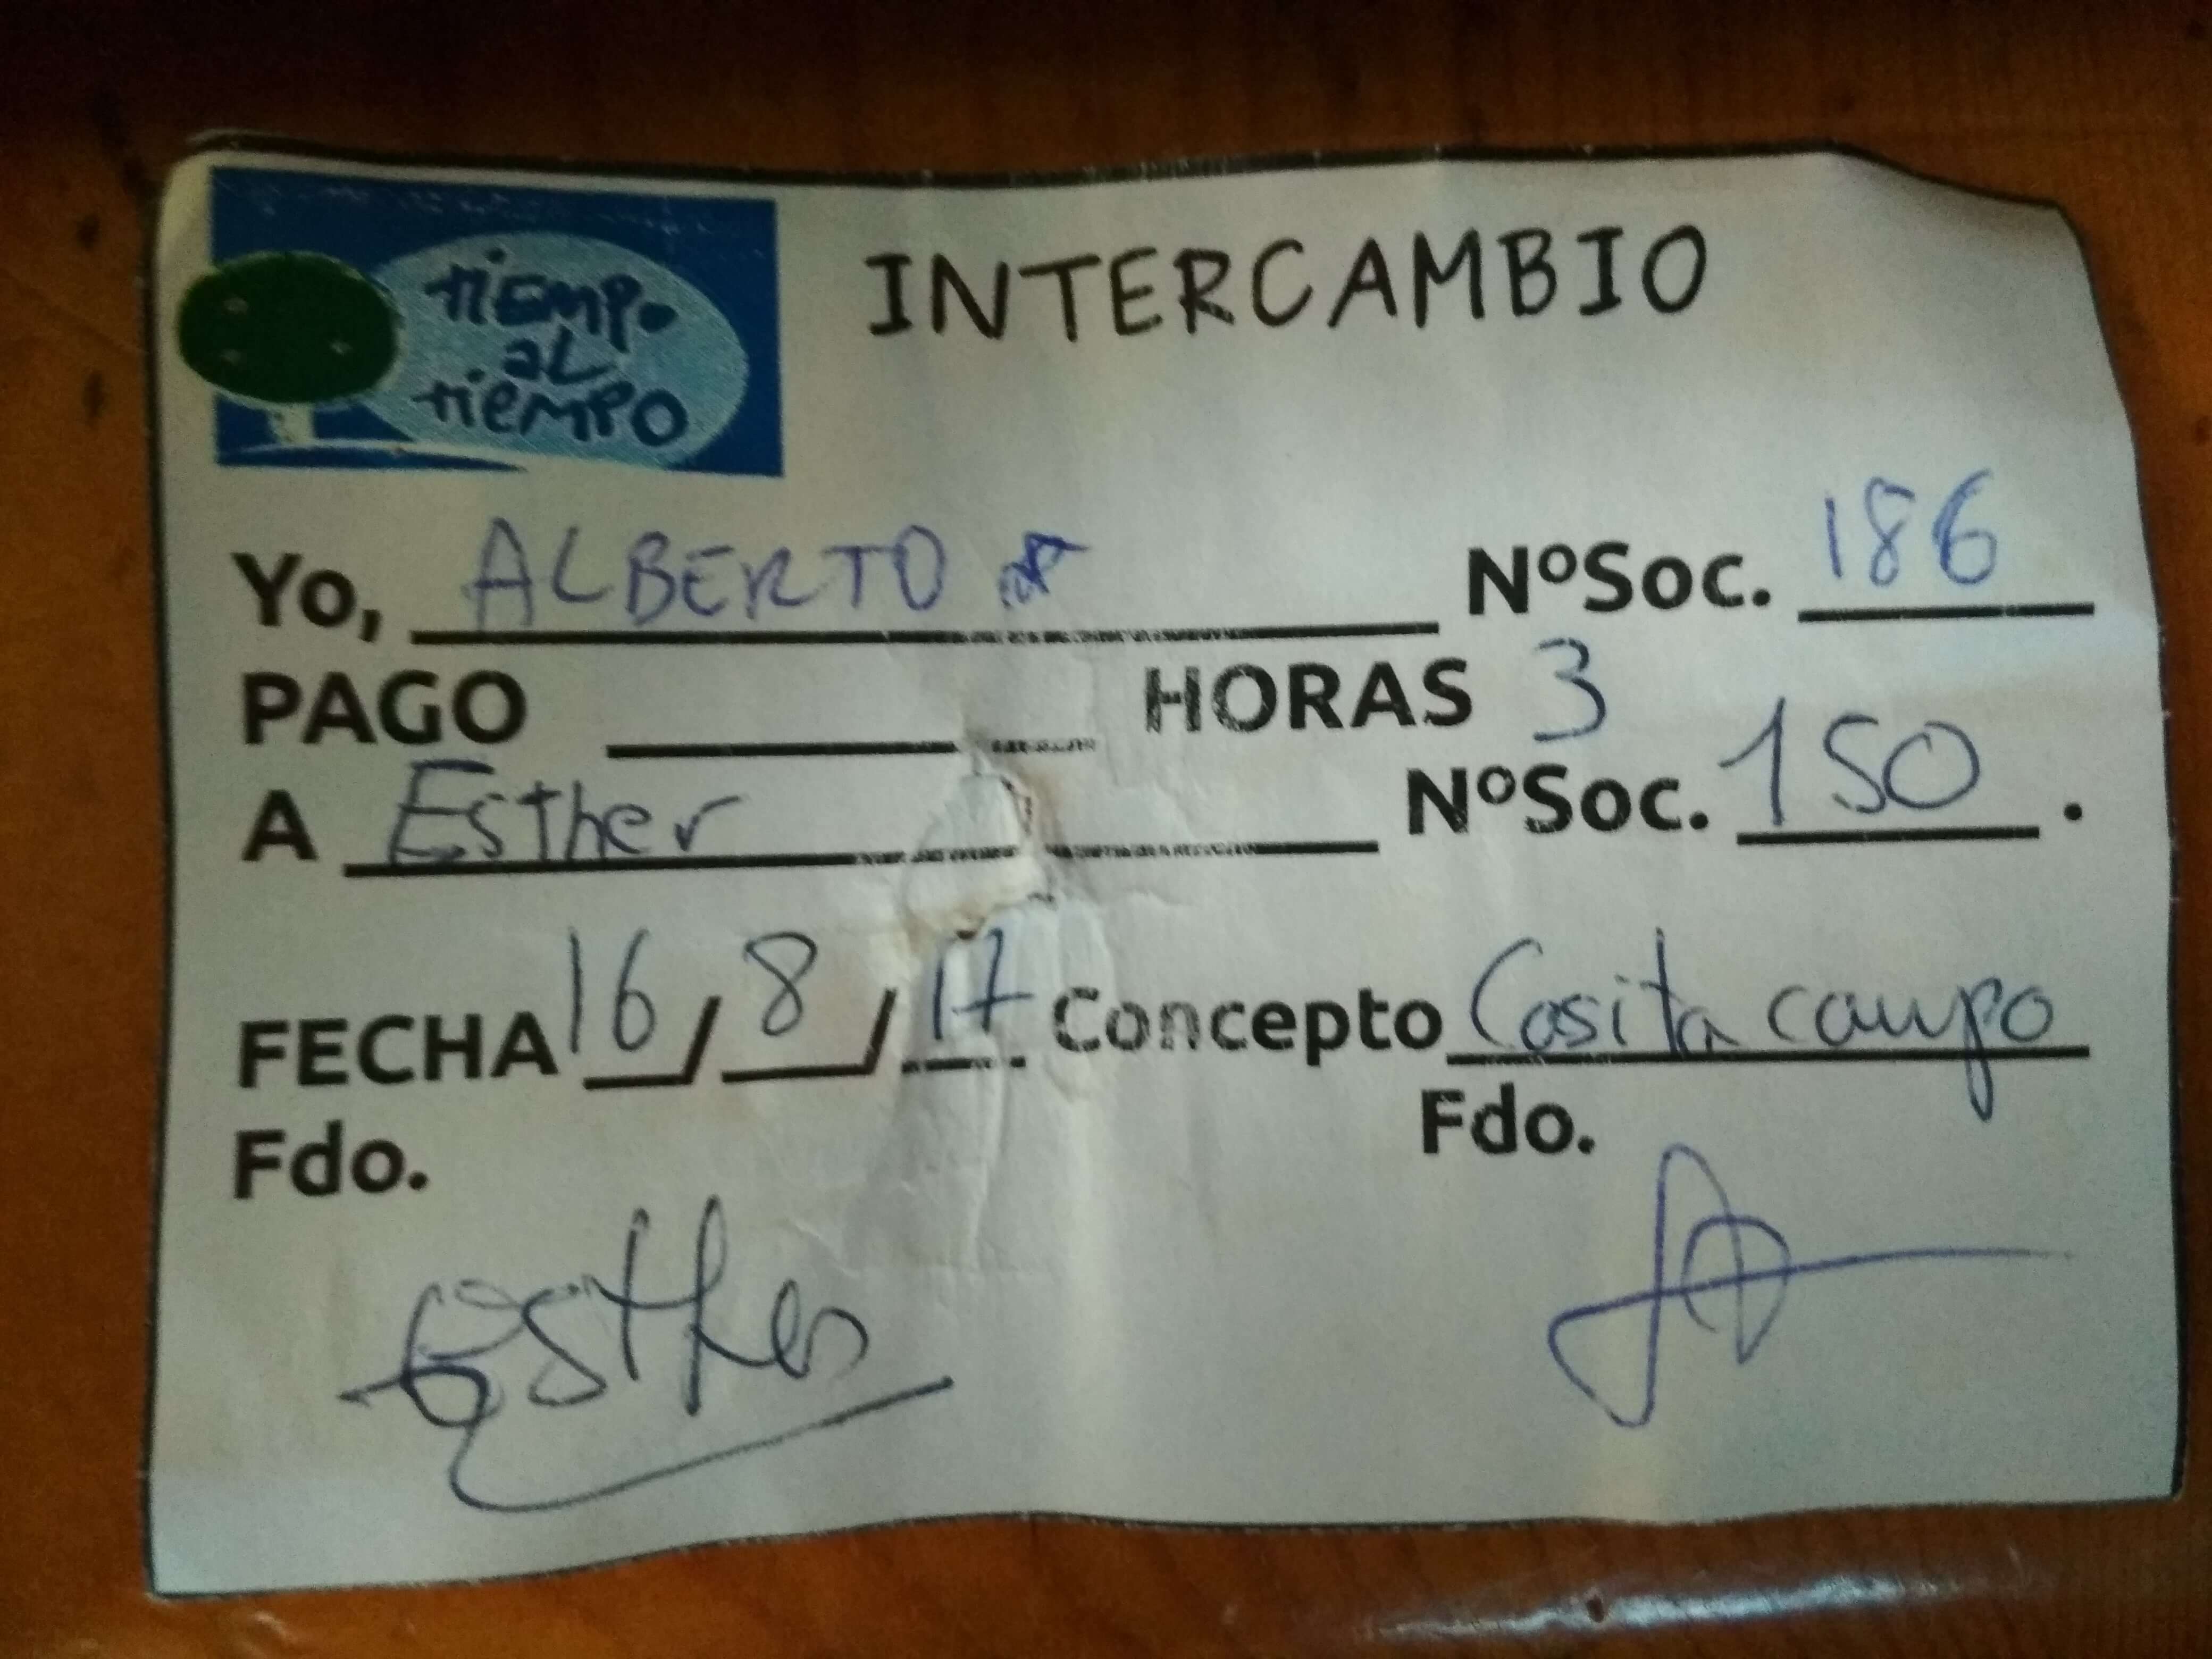 tiempo
al
tiempo
INTERCAMBIO
Yo, ALBERTO NºSoc. 186
PAGO HORAS 3
A Esther NºSoc. 150.
FECHA 16/8/17 Concepto Cosita campo
Fdo. Fdo.
Esther